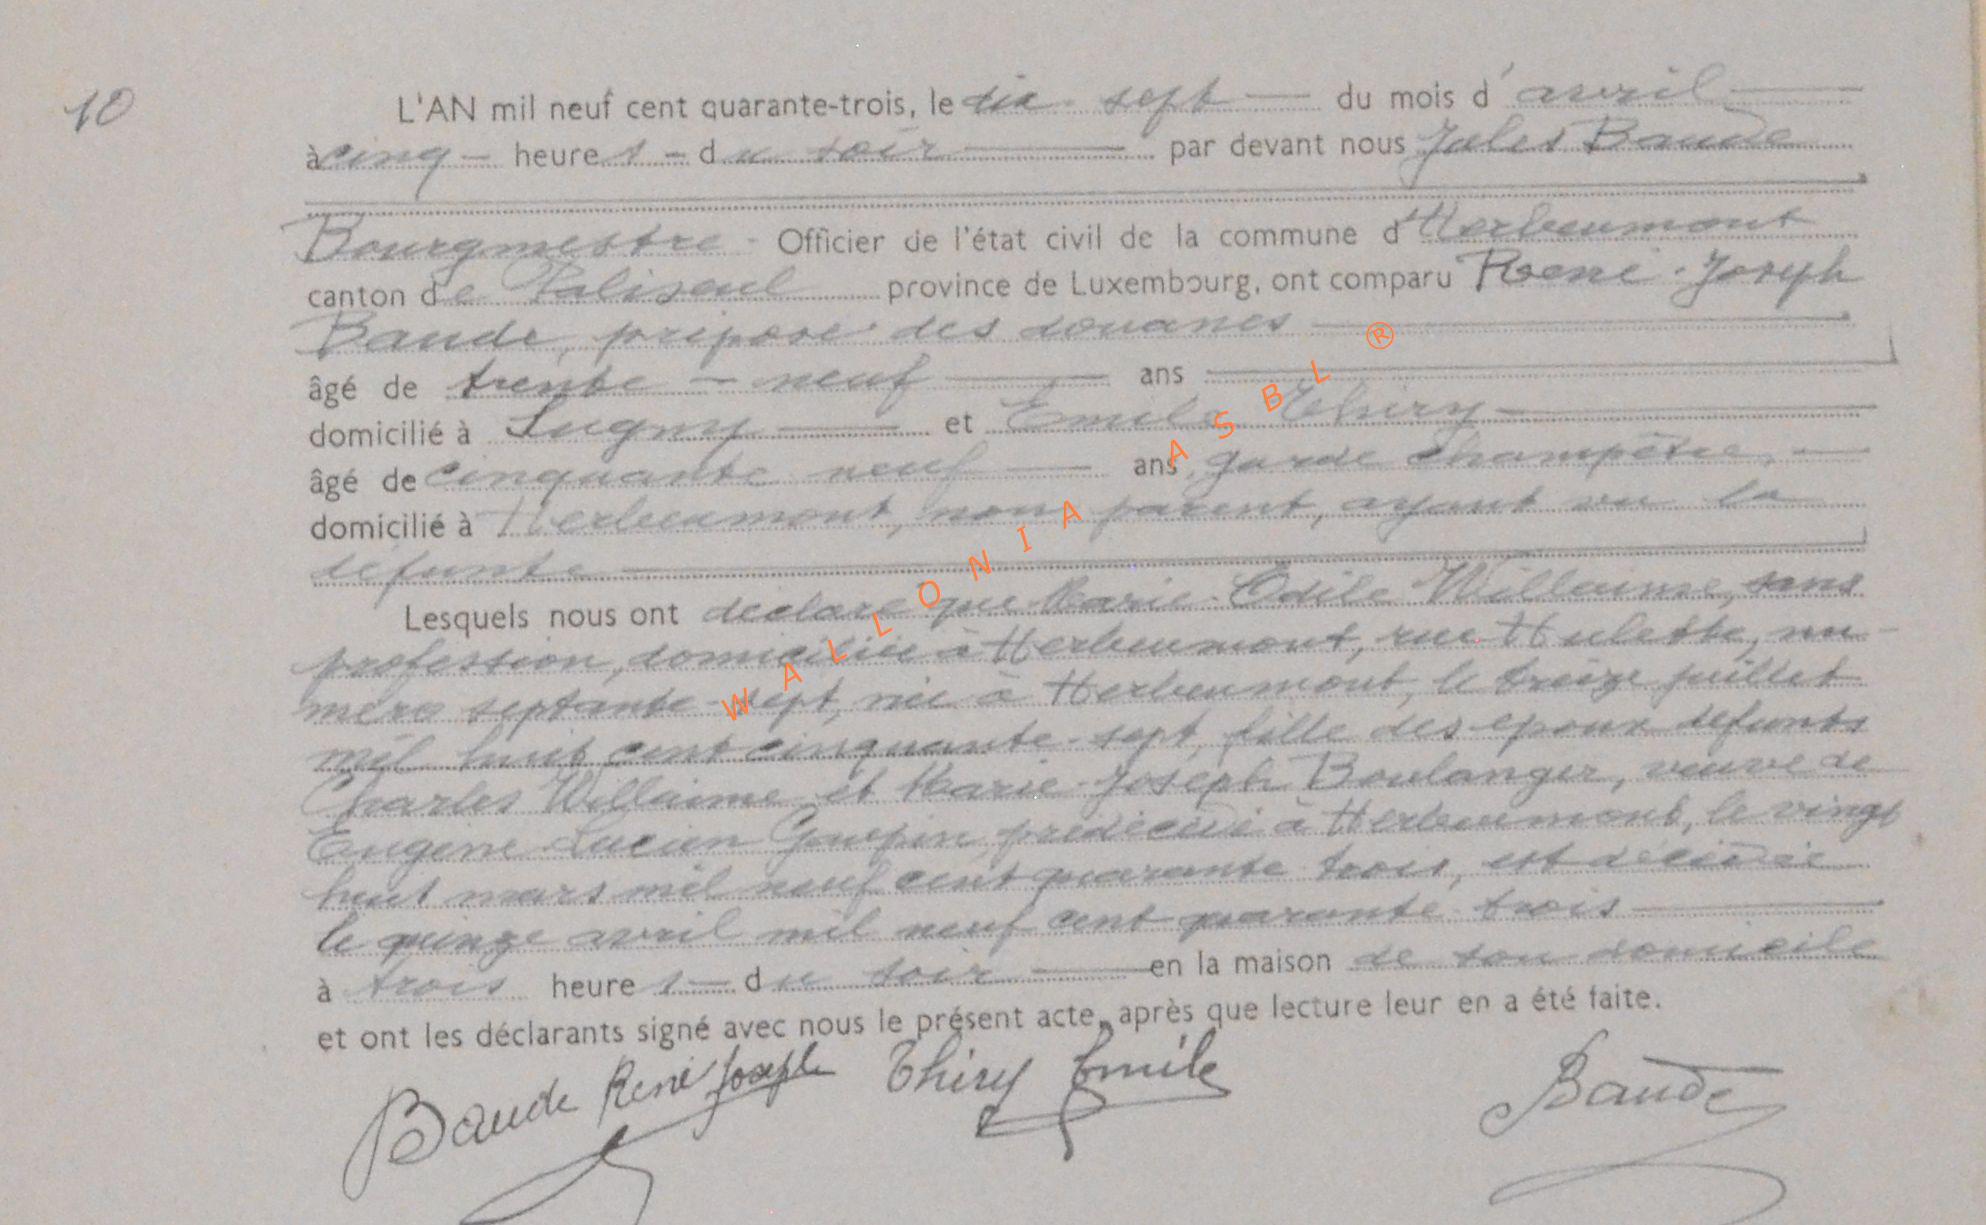 10
L'AN mil neuf cent quarante-trois, le dix-sept du mois d'avril
à cinq heures du soir par devant nous Jules Baude
Bourgmestre Officier de l'état civil de la commune d'Herbeumont
canton de Paliseul province de Luxembourg, ont comparu René-Joseph
Baude, préposé des douanes
âgé de trente-neuf ans
domicilié à Sugny et Emile Thiry
âgé de cinquante neuf ans, garde champêtre,
domicilié à Herbeumont, non parent, ayant vu la
défunte
Lesquels nous ont déclaré que Marie-Odile Willaime, sans
profession, domiciliée à Herbeumont, rue Hulette, nu-
méro septante-sept, née à Herbeumont, le treize juillet
mil huit cent cinquante-sept, fille des époux défunts
Charles Willaime et Marie-Joseph Boulanger, veuve de
Eugène Lucien Goupin, prédécédé à Herbeumont, le vingt
huit mars mil neuf cent quarante trois, est décédée
le quinze avril mil neuf cent quarante-trois
à trois heures du soir en la maison de son domicile
et ont les déclarants signé avec nous le présent acte, après que lecture leur en a été faite.
Baude René Joseph Thiry Emile Baude
WALLONIA ASBL ®